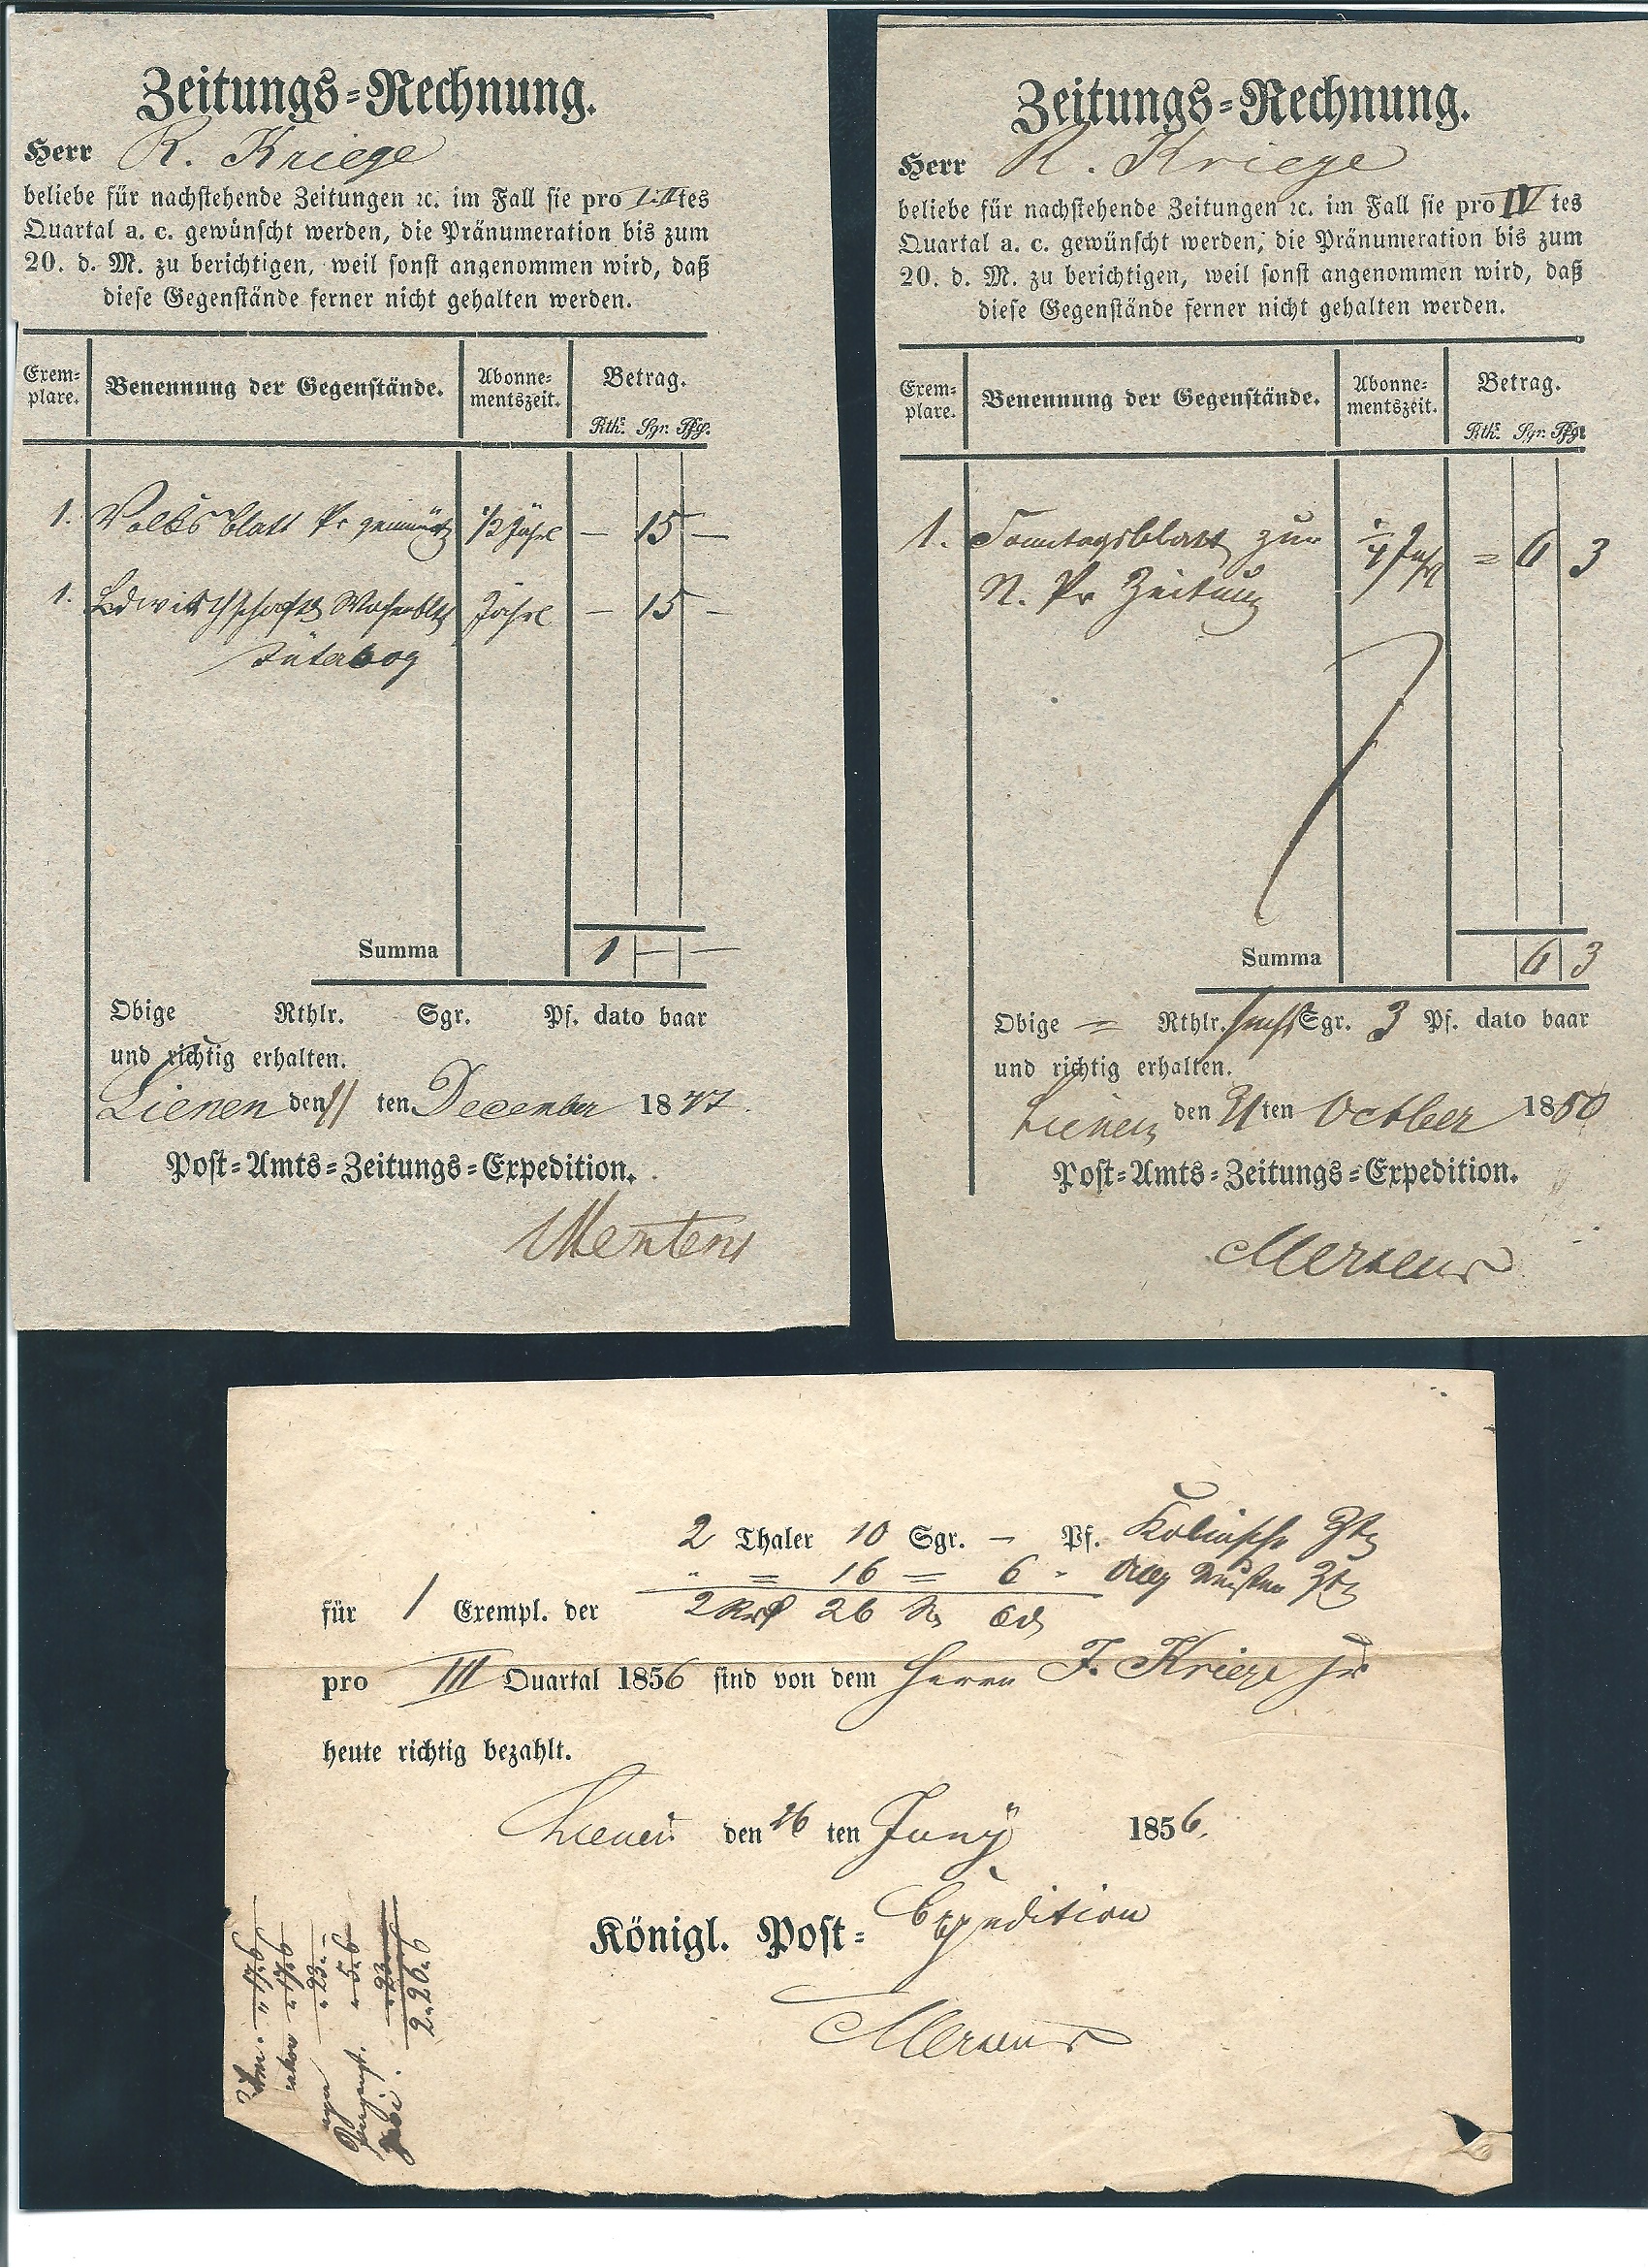 Zeitungs-Rechnung.
Herr R. Kriege
beliebe für nachstehende Zeitungen ꝛc. im Fall sie pro I. II tes
Quartal a. c. gewünscht werden, die Pränumeration bis zum
20. d. M. zu berichtigen, weil sonst angenommen wird, daß
diese Gegenstände ferner nicht gehalten werden.
Exem-plare. Benennung der Gegenstände. Abonne-mentszeit. Betrag.
Rthr. Sgr. Pfg.
1. Volksblatt 1/2 Jährl — 15 —
1. Jährl — 15 —
Jüterbog
Summa 1 — —
Obige Rthlr. Sgr. Pf. dato baar
und richtig erhalten.
Lienen den 11 ten December 1847.
Post-Amts-Zeitungs-Expedition.
Mertens
Zeitungs-Rechnung.
Herr R. Kriege
beliebe für nachstehende Zeitungen ꝛc. im Fall sie pro IV tes
Quartal a. c. gewünscht werden, die Pränumeration bis zum
20. d. M. zu berichtigen, weil sonst angenommen wird, daß
diese Gegenstände ferner nicht gehalten werden.
Exem-plare. Benennung der Gegenstände. Abonne-mentszeit. Betrag.
Rthr. Sgr. Pfg.
1. Sonntagsblatt zur = 6 3
N. Pr Zeitung
Summa 6 3
Obige = Rthlr. sechs Sgr. 3 Pf. dato baar
und richtig erhalten.
Lienen den ten October 1850
Post-Amts-Zeitungs-Expedition.
Mertens
2 Thaler 10 Sgr. — Pf. Kölnische Ztg
" = 16 = 6 -  Ztg
für 1 Exempl. der 2 26 6
pro III Quartal 1856 sind von dem Herrn F. Kriege jr
heute richtig bezahlt.
Lienen den 26 ten Juny 1856.
Königl. Post-Expedition
Mertens
2 . 26 . 6